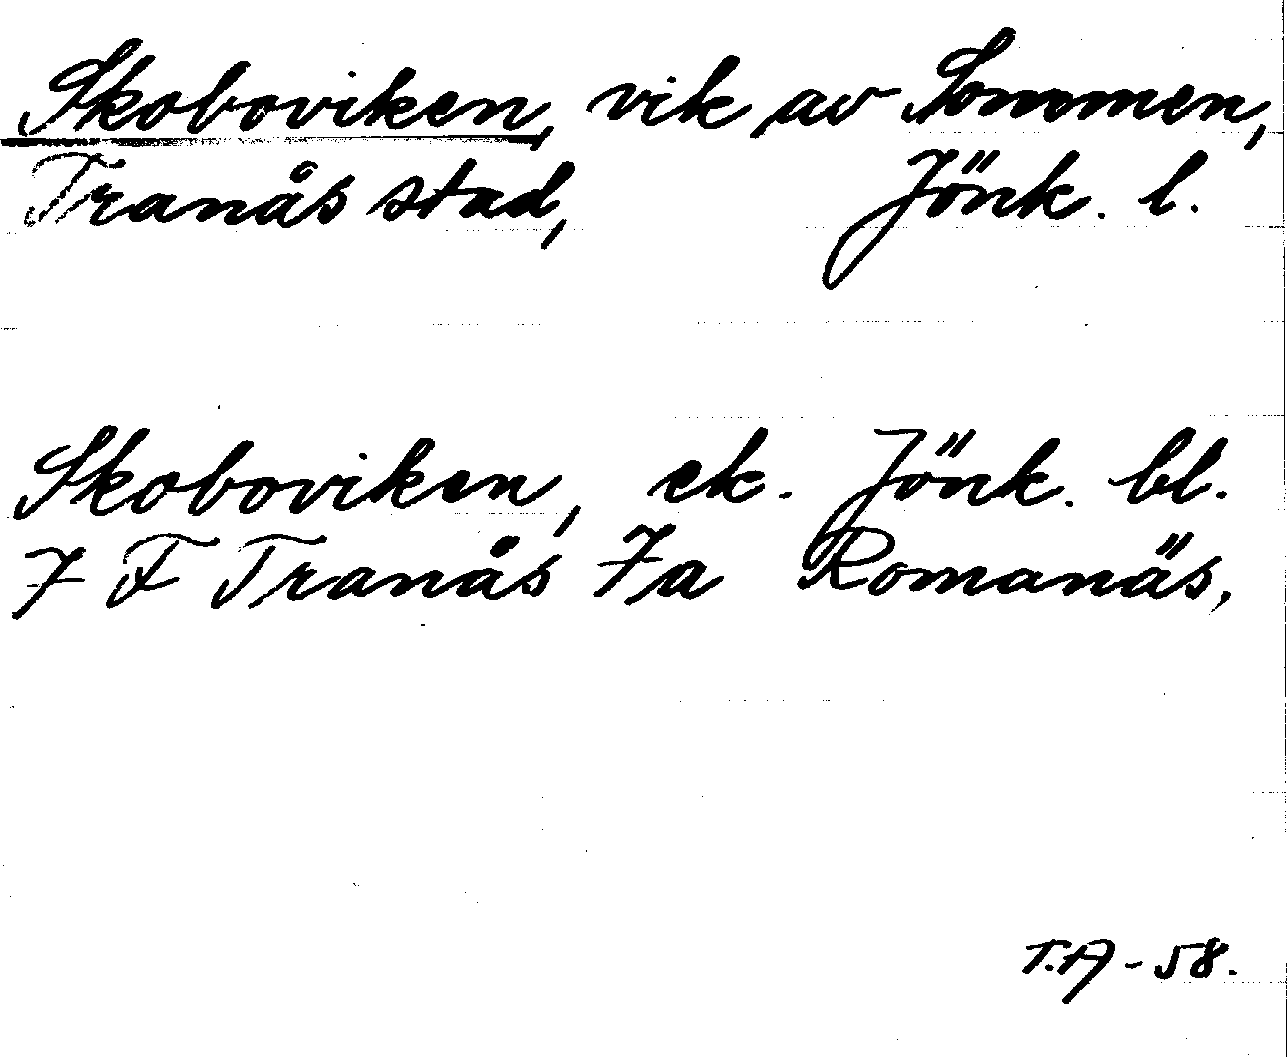 Skoboviken, vik av Sommen,
Tranås stad, Jönk. l.
Skoboviken, ek. Jönk. bl.
7 F Tranås 7a Romanäs,
T.A-58.